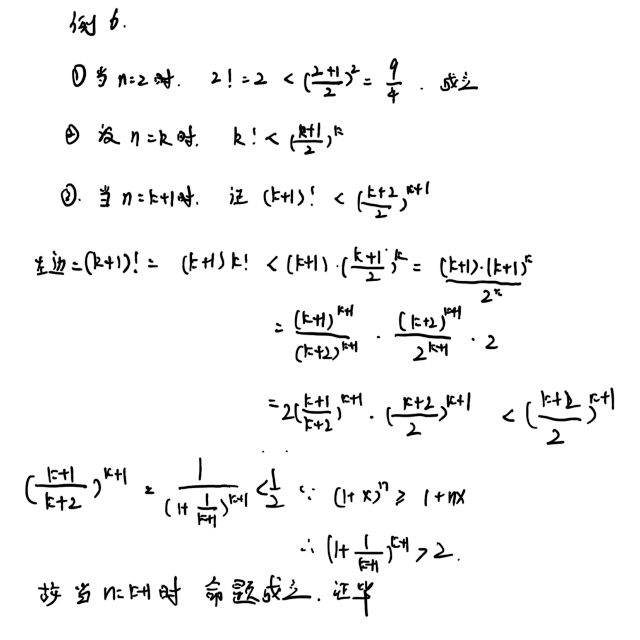 例6.
① 当 n=2 时. 2!=2 < (\frac{2+1}{2})^2 = \frac{9}{4}. 成立
② 设 n=k 时. k! < (\frac{k+1}{2})^k
③. 当 n=k+1 时. 证 (k+1)! < (\frac{k+2}{2})^{k+1}
左边=(k+1)! = (k+1)k! < (k+1)·(\frac{k+1}{2})^k = \frac{(k+1)·(k+1)^k}{2^k}
= \frac{(k+1)^{k+1}}{(k+2)^{k+1}} · \frac{(k+2)^{k+1}}{2^{k+1}} · 2
= 2(\frac{k+1}{k+2})^{k+1} · (\frac{k+2}{2})^{k+1} < (\frac{k+2}{2})^{k+1}
(\frac{k+1}{k+2})^{k+1} = \frac{1}{(1+\frac{1}{k+1})^{k+1}} < \frac{1}{2} ∵ (1+x)^n ≥ 1+nx
∴ (1+\frac{1}{k+1})^{k+1} > 2.
故当 n=k+1 时 命题成立. 证毕